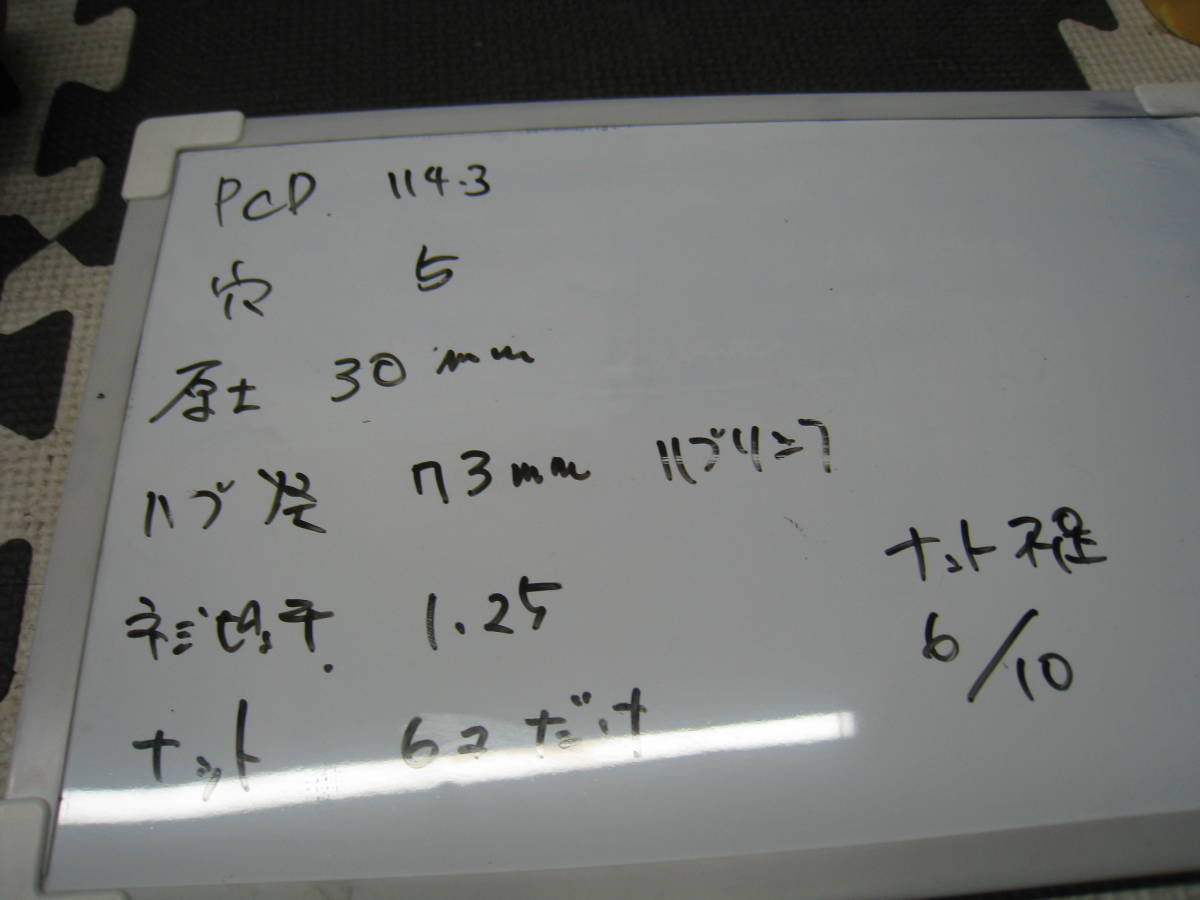 PCD. 114.3
穴 5
原土 30mm
ハブ径 73mm ハブリング
ネジピッチ. 1.25
ナット 6コだけ
ナット不足
6/10